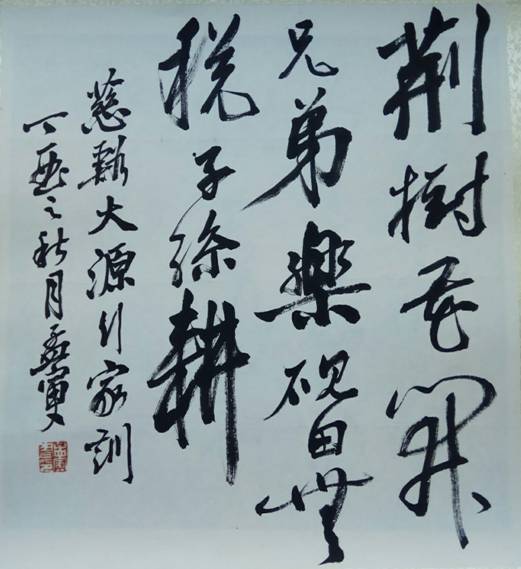 荆樹花開
兄弟樂硯田無
税子孫耕
慈谿大源行家訓
丁酉之秋月孟軍